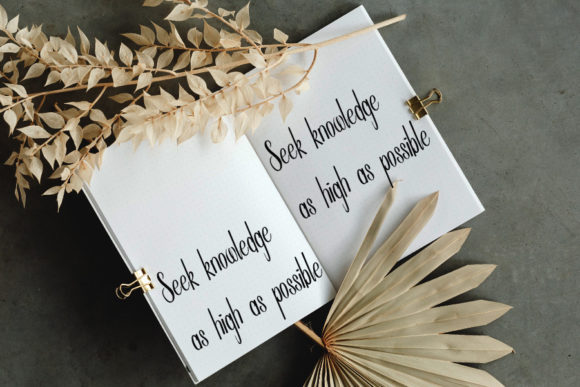 Seek knowledge
as high as possible
Seek knowledge
as high as possible